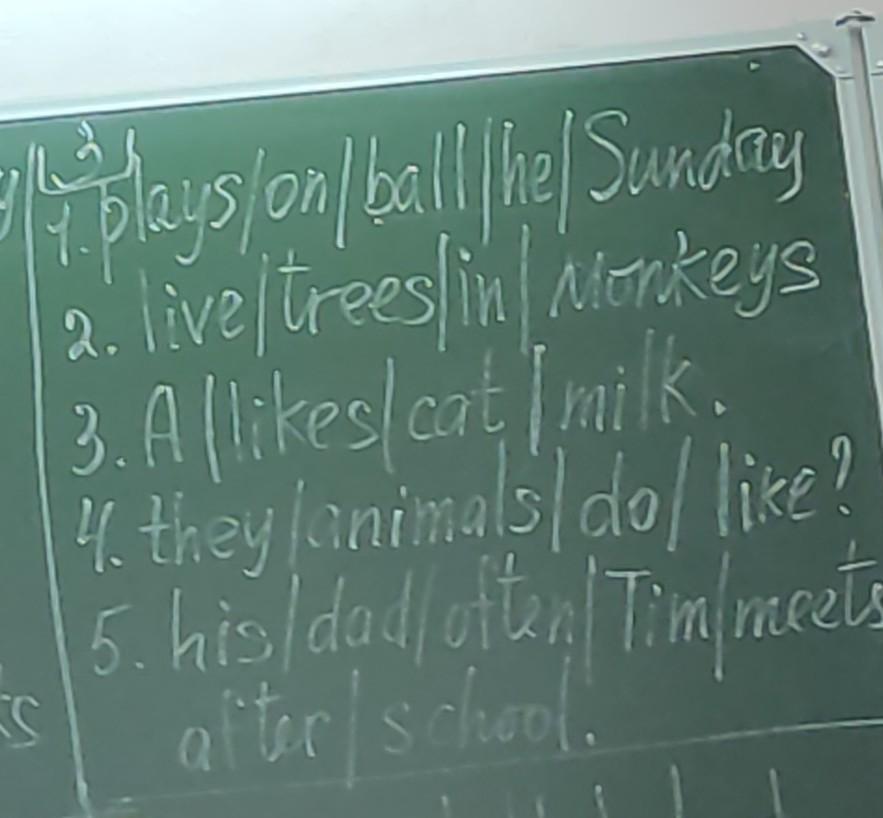 3
1. plays/on/ball/he/Sunday
2. live/trees/in/Monkeys
3. A/likes/cat/milk.
4. they/animals/do/like?
5. his/dad/often/Tim/meets
after/school.